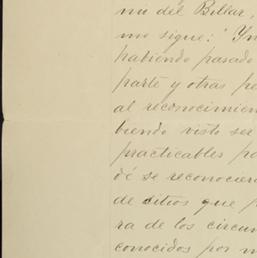 mu del Billar,
mo sigue: Yn
habiendo pasado
parte y otras pe
al reconocimien
biendo visto ser
practicables po
de se reconocier
de sitios que p
ra de los circun
conocidos por m